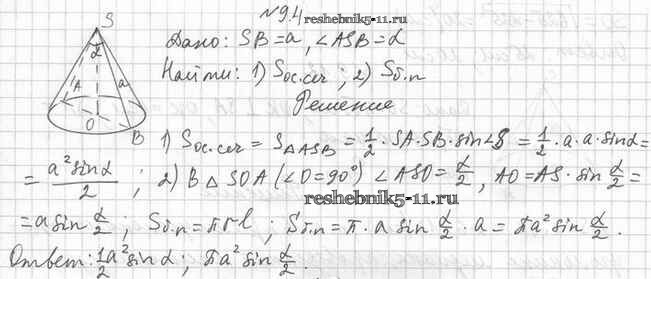 № 9.4
reshebnik5-11.ru
S
α
a
A
O
B
Дано: SB = a, ∠ASB = α
Найти: 1) Sос.сеч ; 2) Sб.п
Решение
1) Sос.сеч = S△ASB = 1/2 · SA · SB · sin∠S = 1/2 · a · a · sinα =
= a² sinα / 2 ; 2) В △ SOA (∠O = 90°) ∠ASO = α/2 , AO = AS · sin α/2 =
reshebnik5-11.ru
= a sin α/2 ; Sб.п = πrl ; Sб.п = π · a sin α/2 · a = πa² sin α/2 .
Ответ: 1/2 a² sinα ; πa² sin α/2 .